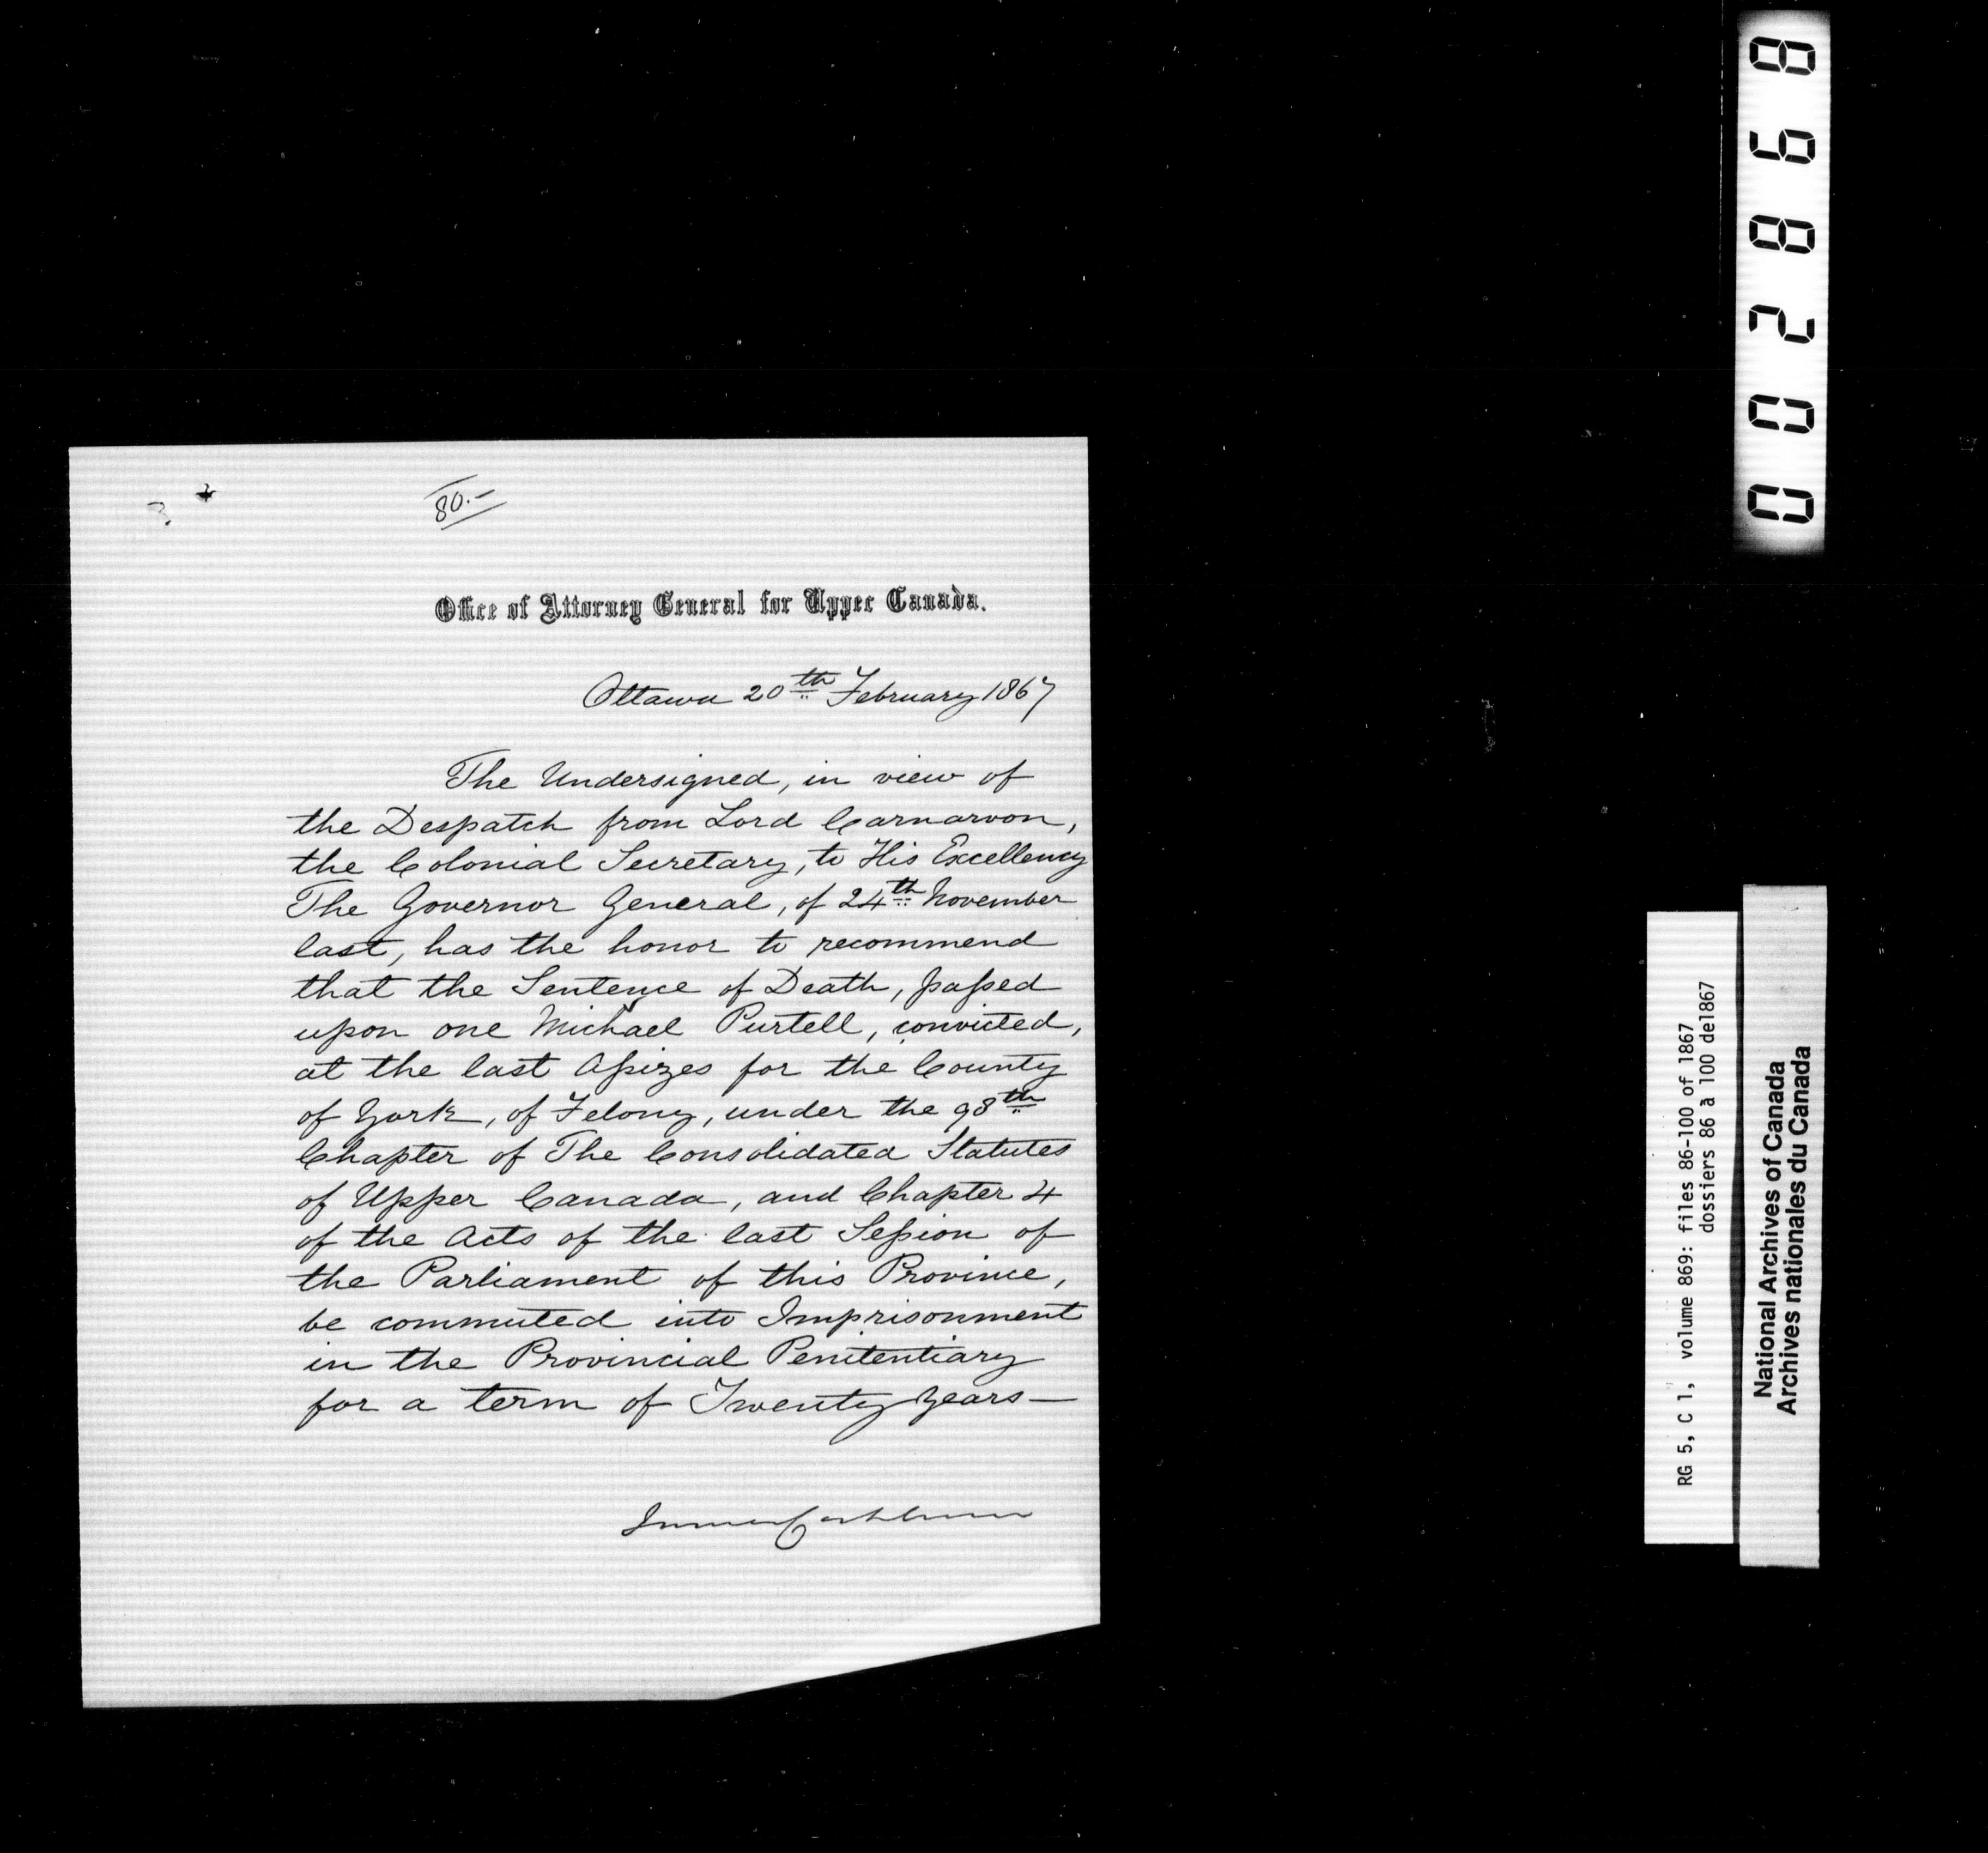 80.-
Office of Attorney General for Upper Canada.
Ottawa 20th February 1867
The Undersigned, in view of
the Despatch from Lord Carnarvon,
the Colonial Secretary, to His Excellency
The Governor General, of 24th November
last, has the honor to recommend
that the Sentence of Death, passed
upon one Michael Purtell, convicted,
at the last Assizes for the County
of York, of Felony, under the 98th
Chapter of The Consolidated Statutes
of Upper Canada, and Chapter 4
of the Acts of the last Session of
the Parliament of this Province,
be commuted into Imprisonment
in the Provincial Penitentiary
for a term of Twenty Years—
002868
RG 5, C 1, volume 869: files 86-100 of 1867
dossiers 86 à 100 de1867
National Archives of Canada
Archives nationales du Canada